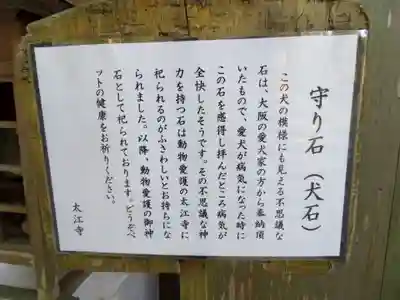 守り石（犬石）
この犬の模様にも見える不思議な
石は、大阪の愛犬家の方から奉納頂
いたもので、愛犬が病気になった時に
この石を感得し拝んだところ病気が
全快したそうです。その不思議な神
力を持つ石は動物愛護の太江寺に
祀られるのがふさわしいとお持ちにな
られました。以降、動物愛護の御神
石として祀られております。どうかペ
ットの健康をお祈りください。
太江寺